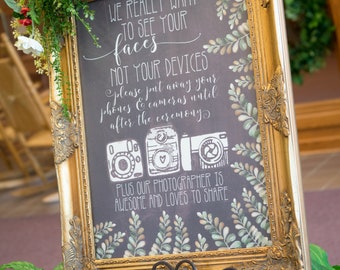 WE REALLY WANT
TO SEE YOUR
faces
NOT YOUR DEVICES
please put away your
phones & cameras until
after the ceremony
PLUS OUR PHOTOGRAPHER IS
AWESOME AND LOVES TO SHARE